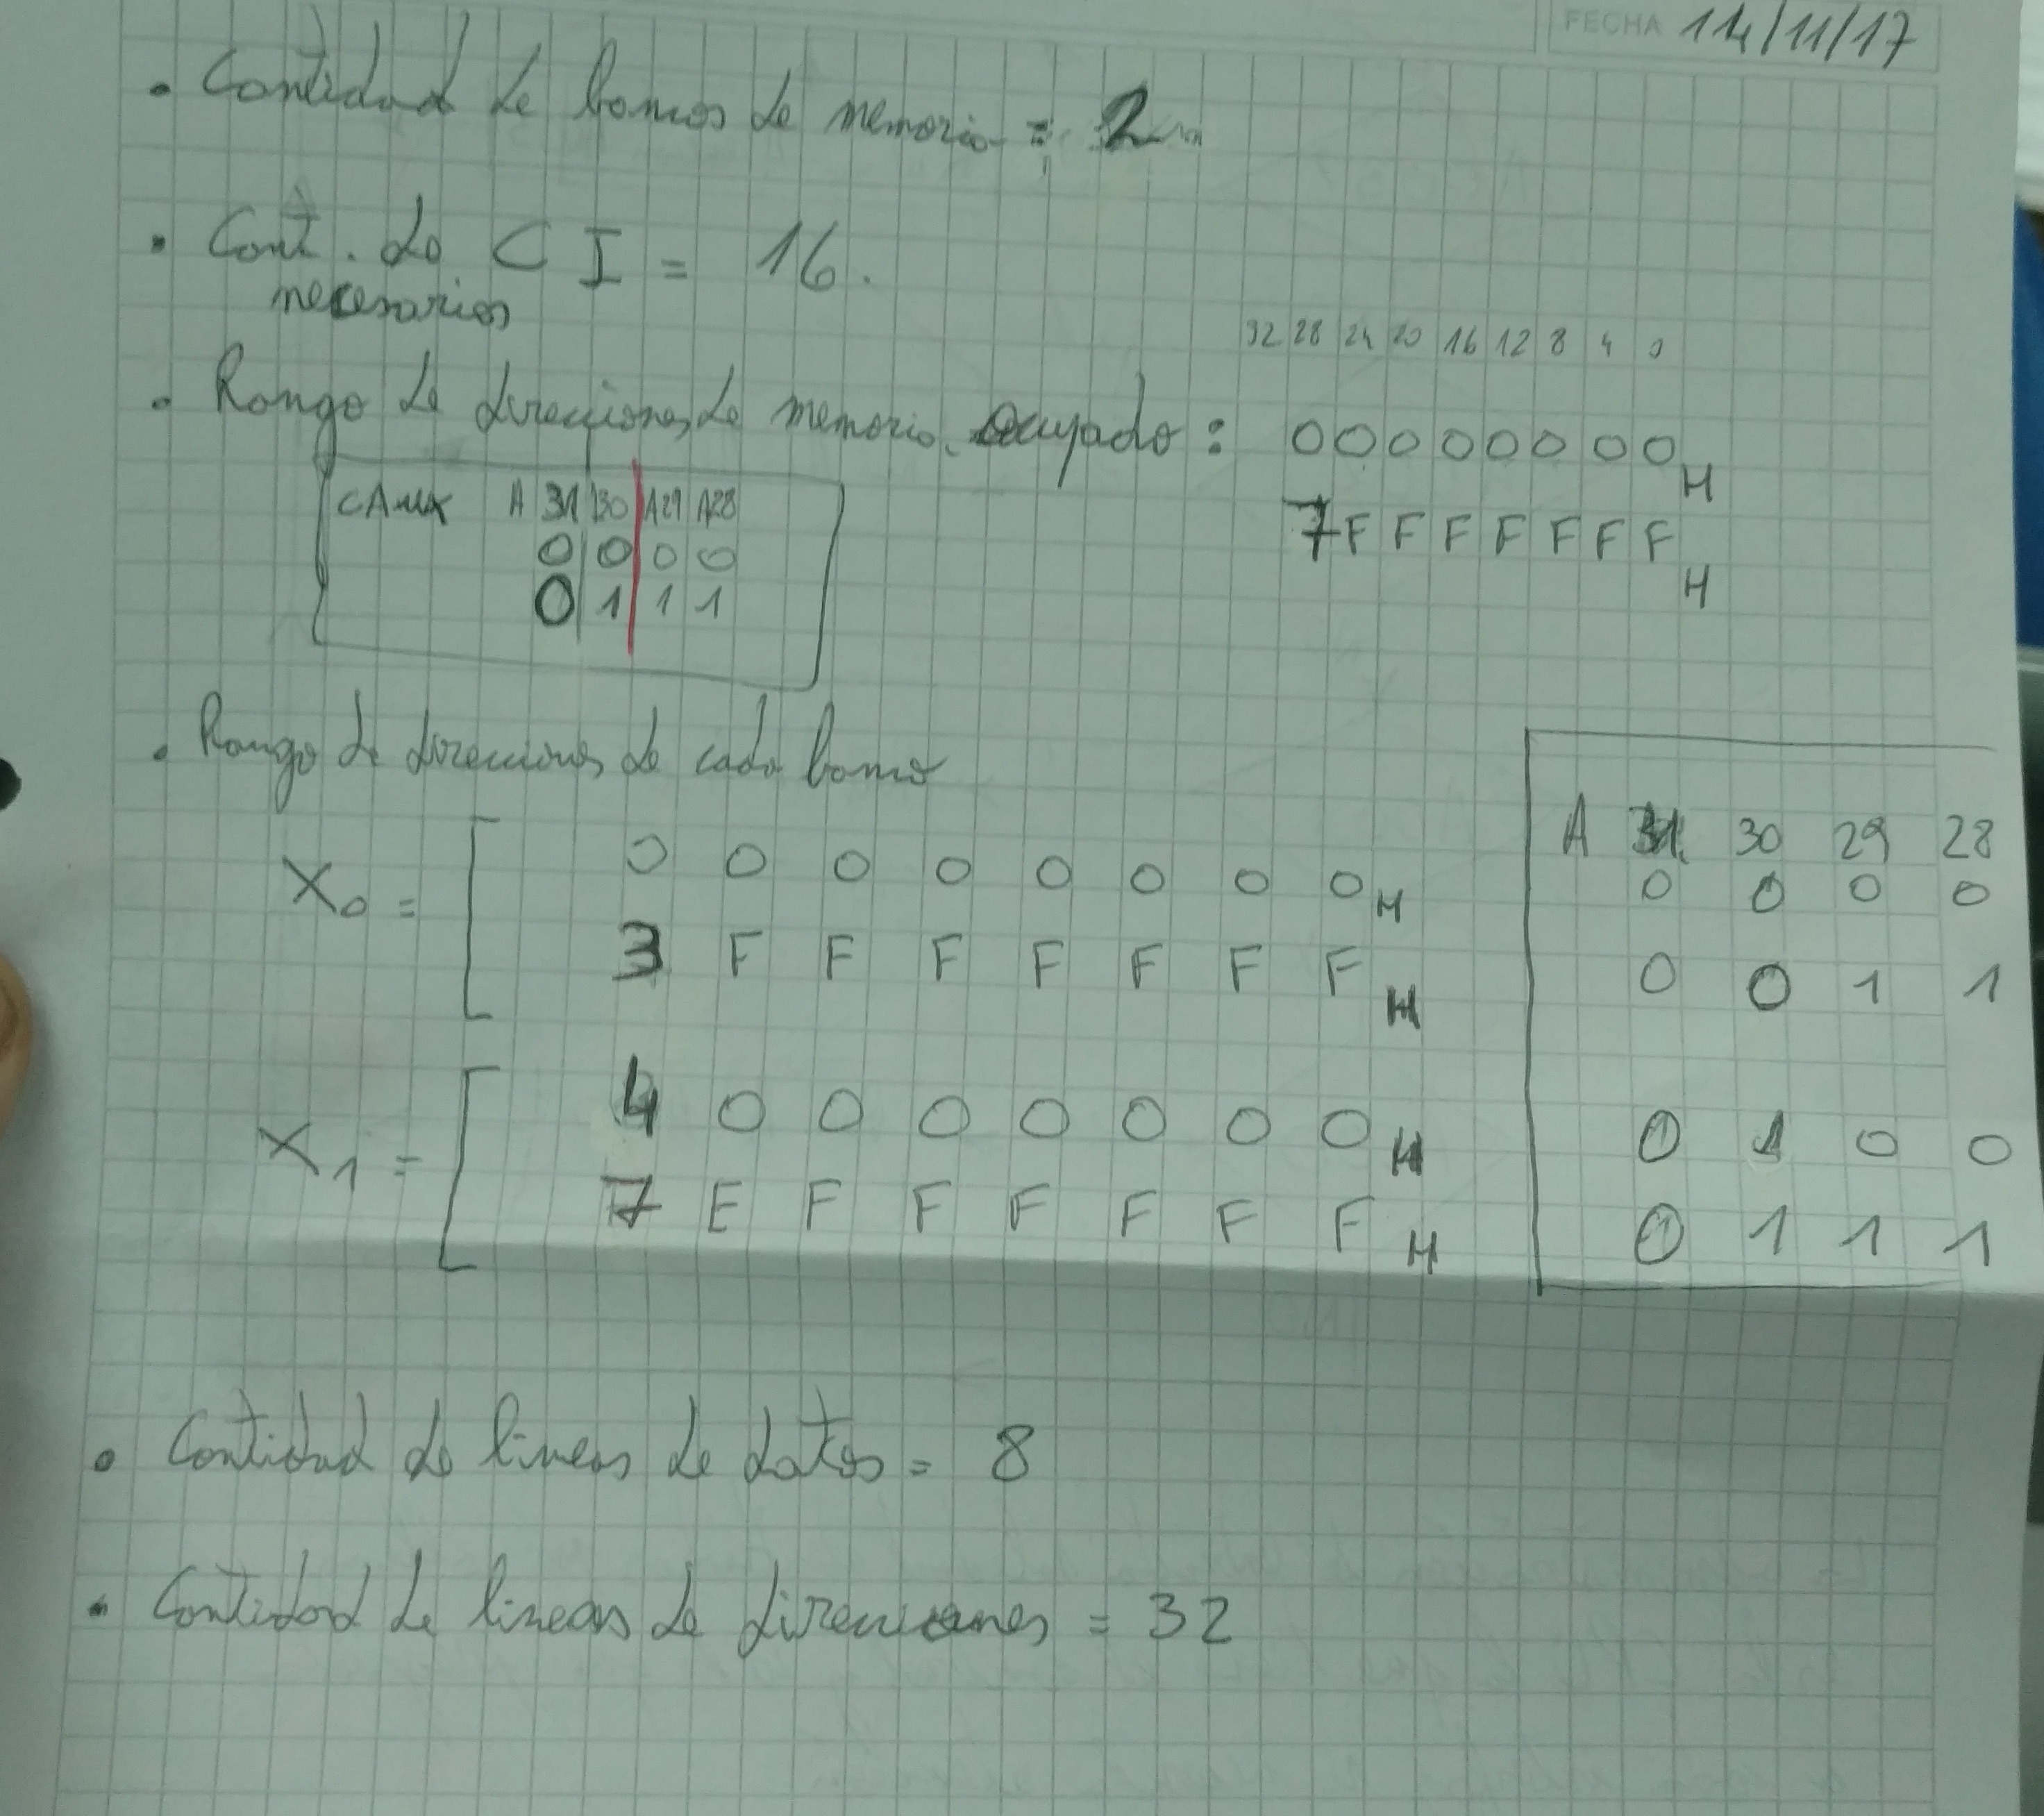 FECHA 14/11/17
• Cantidad de bancos de memoria = 2
• Cant. de CI = 16.
necesarios
32 28 24 20 16 12 8 4 0
• Rango de direcciones de memoria ocupado: 00000000H
7FFFFFFFH
CAUX A 31 A30 A29 A28
0 0 0 0
0 1 1 1
• Rango de direcciones de cada banco
X0 = [ 0 0 0 0 0 0 0 0 H
3 F F F F F F F H
X1 = [ 4 0 0 0 0 0 0 0 H
7 E F F F F F F H
A 31 30 29 28
0 0 0 0
0 0 1 1
0 1 0 0
0 1 1 1
• Cantidad de lineas de datos = 8
• Cantidad de lineas de direcciones = 32